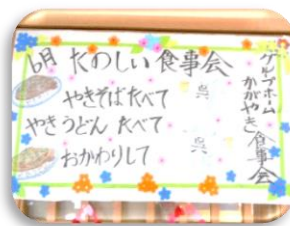 6月 たのしい食事会
やきそばたべて
やきうどん たべて
おかわりして
呉
呉
グループホーム
かがやき食事会